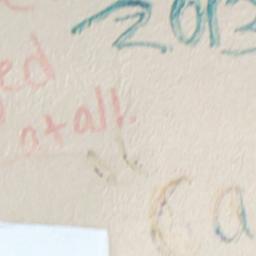 2013
ed
at all
Ca